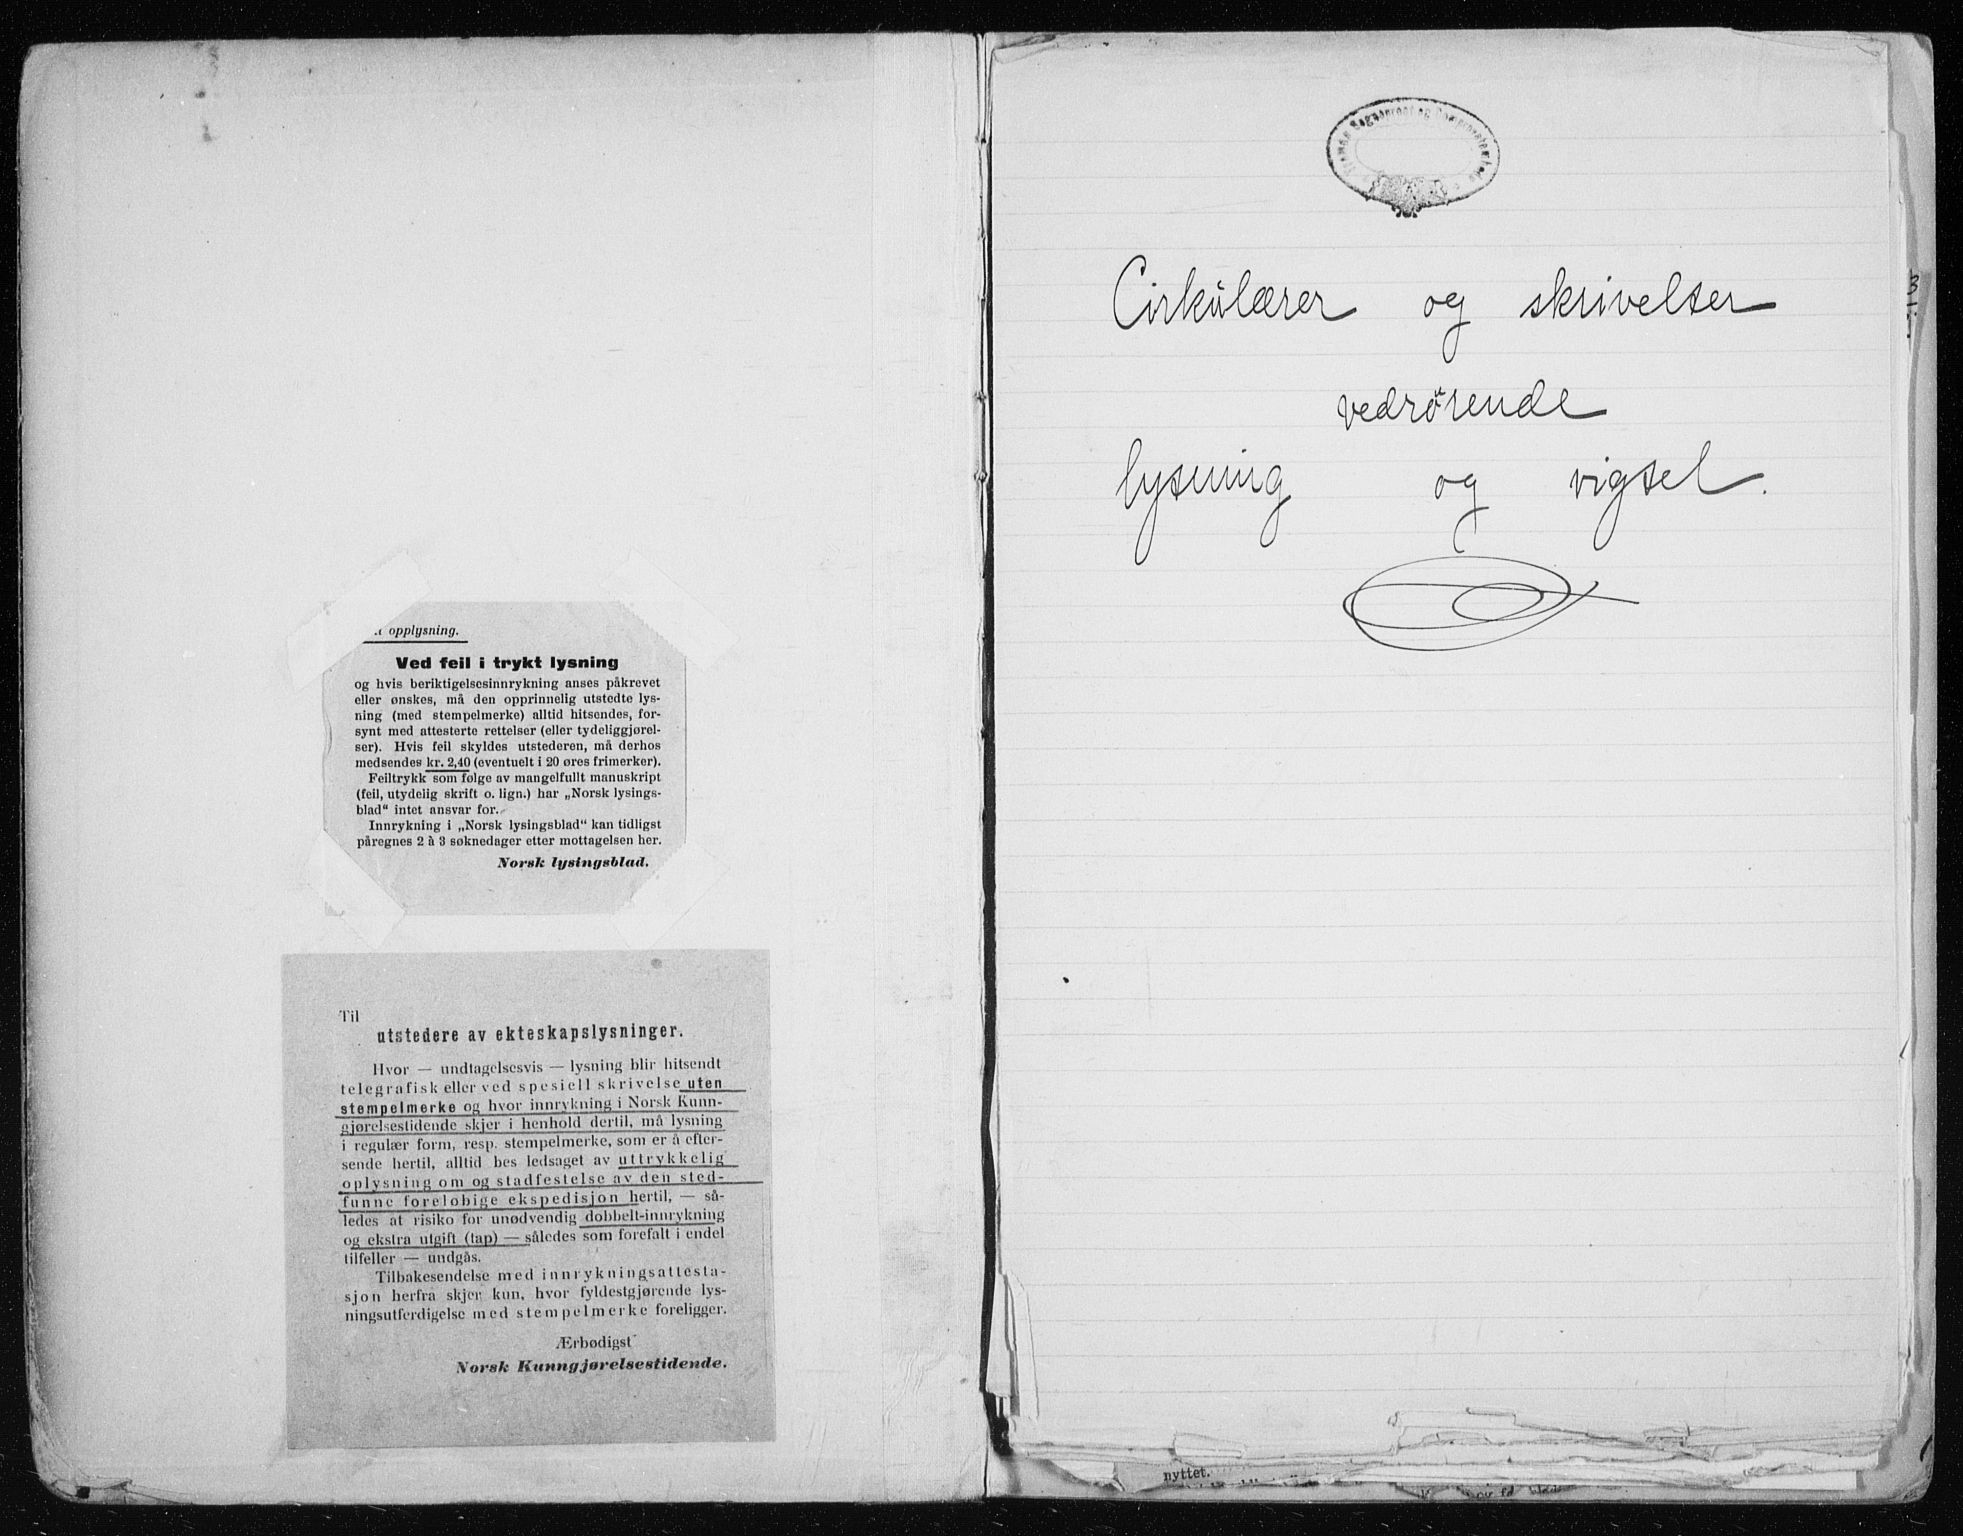 opplysning.
Ved feil i trykt lysning
og hvis beriktigelsesinnrykning anses påkrevet
eller ønskes, må den opprinnelig utstedte lys-
ning (med stempelmerke) alltid hitsendes, for-
synt med attesterte rettelser (eller tydeliggjørel-
ser). Hvis feil skyldes utstederen, må derhos
medsendes kr. 2,40 (eventuelt i 20 øres frimerker).
Feiltrykk som følge av mangelfullt manuskript
(feil, utydelig skrift o. lign.) har „Norsk lysings-
blad“ intet ansvar for.
Innrykning i „Norsk lysingsblad“ kan tidligst
påregnes 2 à 3 søknedager etter mottagelsen her.
Norsk lysingsblad.
Til
utstedere av ekteskapslysninger.
Hvor — undtagelsesvis — lysning blir hitsendt
telegrafisk eller ved spesiell skrivelse uten
stempelmerke og hvor innrykning i Norsk Kunn-
gjørelsestidende skjer i henhold dertil, må lysning
i regulær form, resp. stempelmerke, som er å efter-
sende hertil, alltid bes ledsaget av uttrykkelig
oplysning om og stadfestelse av den sted-
funne foreløbige ekspedisjon hertil, — så-
ledes at risiko for unødvendig dobbelt-innrykning
og ekstra utgift (tap) — således som forefalt i endel
tilfeller — undgås.
Tilbakesendelse med innrykningsattesta-
sjon herfra skjer kun, hvor fyldestgjørende lys-
ningsutferdigelse med stempelmerke foreligger.
Ærbødigst
Norsk Kunngjørelsestidende.
Cirkulærer og skrivelser
vedrørende
lysning og vigsel.
nyttet.